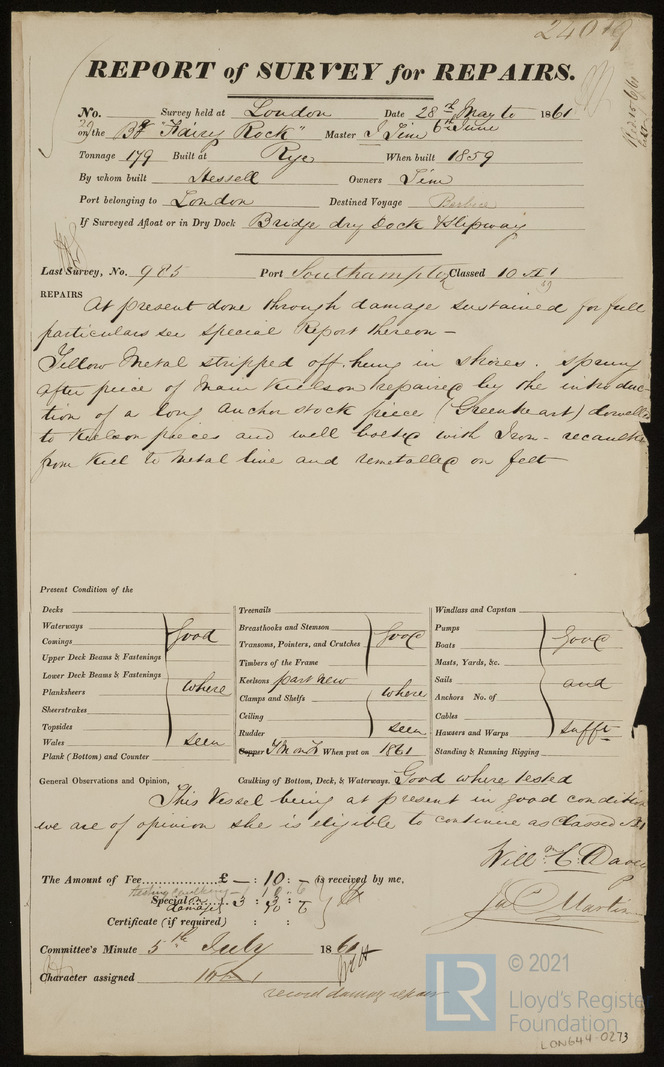 REPORT of SURVEY for REPAIRS.
No. Survey held at London Date 28th May to 1861
6th June
on the Bg "Fairy Rock" Master J Sim
Tonnage 179 Built at Rye When built 1859
By whom built Hessell Owners Sim
Port belonging to London Destined Voyage Berbice
If Surveyed Afloat or in Dry Dock Bridge dry Dock & Slipway
Last Survey, No. 985 Port Southampton Classed 10 A 1
59
REPAIRS At present done through damage sustained for full
particulars see Special Report thereon -
Yellow Metal stripped off. hung in shores. sprung
after piece of Main Keelson repaired by the introduc-
tion of a long anchor stock piece (Greenheart) dowelled
to Keelson pieces and well bolted with Iron - recaulked
from Keel to Metal line and remetalled on felt
Present Condition of the
Decks
Waterways
Comings
Upper Deck Beams & Fastenings
Lower Deck Beams & Fastenings
Planksheers
Sheerstrakes
Topsides
Wales
Plank (Bottom) and Counter
Good
where
seen
Treenails
Breasthooks and Stemson
Transoms, Pointers, and Crutches
Timbers of the Frame
Keelsons part new
Clamps and Shelfs
Ceiling
Rudder
Copper YM on F When put on 1861
Good
where
seen
Windlass and Capstan
Pumps
Boats
Masts, Yards, &c.
Sails
Anchors No. of
Cables
Hawsers and Warps
Standing & Running Rigging
Good
and
sufft
General Observations and Opinion, Caulking of Bottom, Deck, & Waterways. Good where tested
This Vessel being at present in good condition
we are of opinion she is eligible to continue as Classed A1
Willm H. Davey
Jas C Martin
The Amount of Fee £ - : 10 : - is received by me,
testing caulking - 10 - 6
Special 3 : 3 : -
damage
Certificate (if required) : :
Committee's Minute 5th July 1861
Character assigned 10 A 1
record damage repair
© 2021
LR
Lloyd's Register
Foundation
LON644-0273